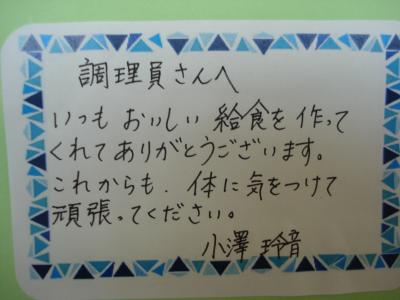 調理員さんへ
いつも おいしい 給食を 作って
くれて ありがとうございます。
これからも、体に 気をつけて
頑張ってください。
小澤 玲音